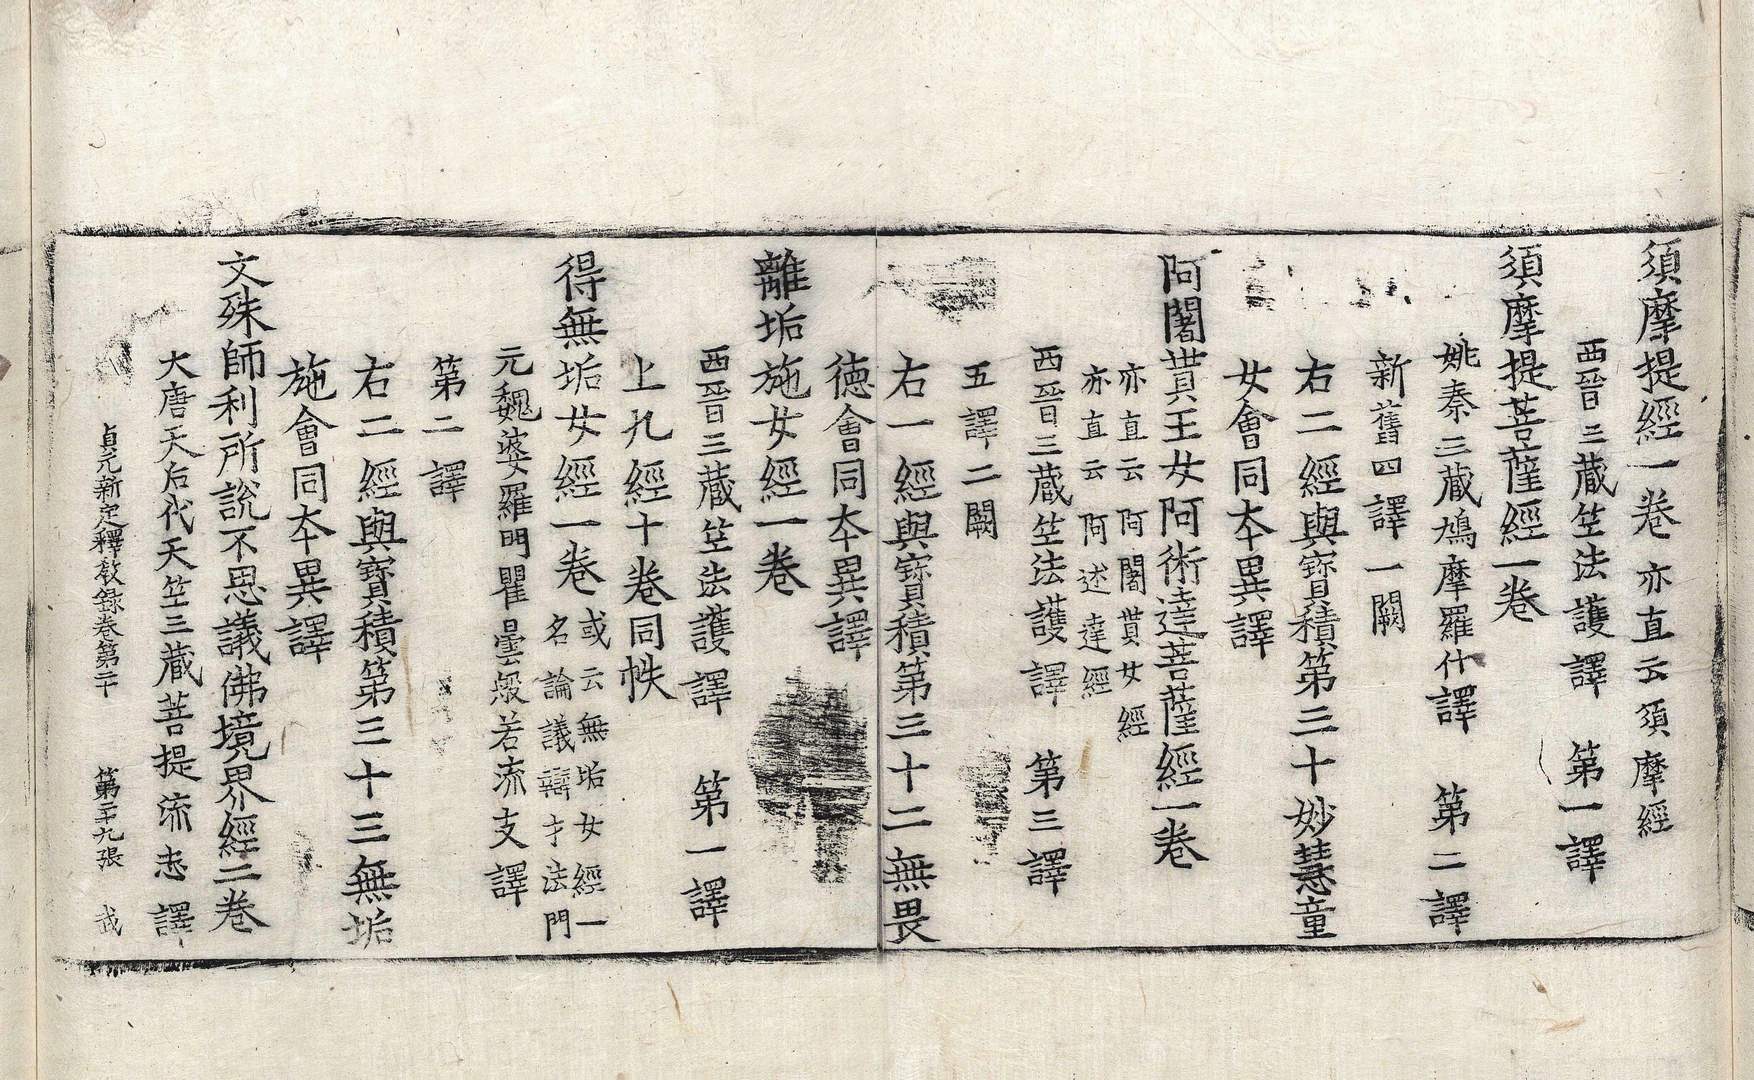 須摩提經一卷亦直云須摩經
西晉三藏竺法護譯 第一譯
須摩提菩薩經一卷
姚秦三藏鳩摩羅什譯 第二譯
新舊四譯一闕
右二經與寶積第三十妙慧童
女會同夲異譯
阿闍貰王女阿術達菩薩經一卷
亦直云阿闍貰女經
亦直云阿述達經
西晉三藏竺法護譯 第三譯
五譯二闕
右一經與寶積第三十二無畏
德會同夲異譯
離垢施女經一卷
西晉三藏竺法護譯 第一譯
上九經十卷同帙
得無垢女經一卷
或云無垢女經一
名論議辯才法門
元魏婆羅門瞿曇般若流支譯
第二譯
右二經與寶積第三十三無垢
施會同夲異譯
文殊師利所說不思議佛境界經二卷
大唐天后代天竺三藏菩提流志譯
貞元新定釋教錄卷第二十 第二十九張